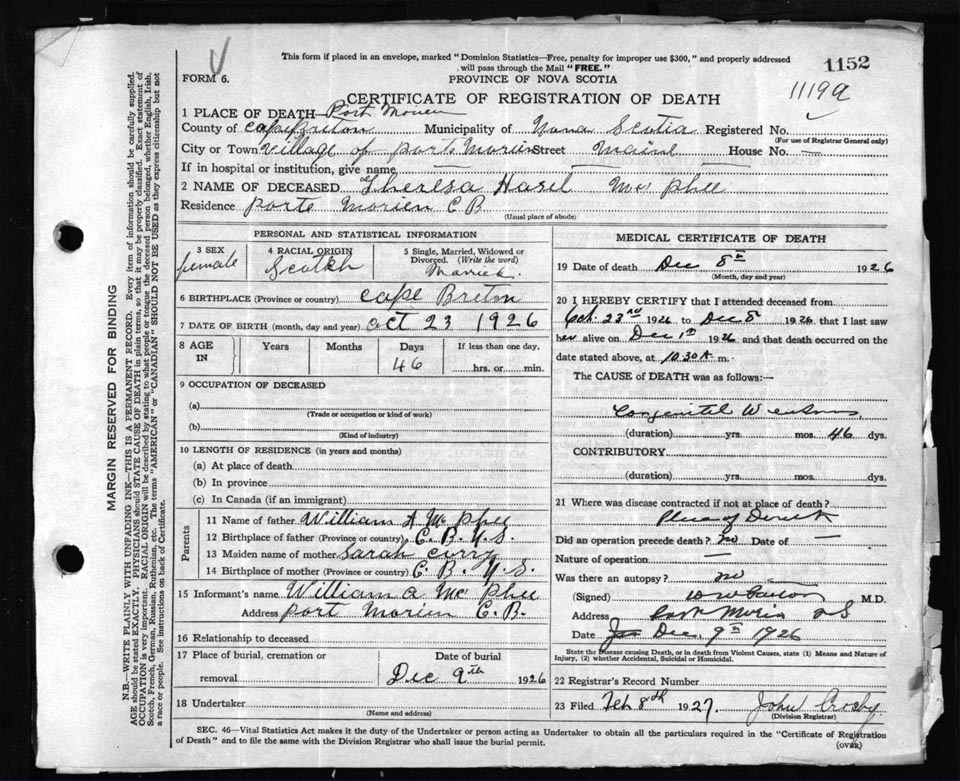 This form if placed in an envelope, marked "Dominion Statistics—Free, penalty for improper use $300," and properly addressed
will pass through the Mail "FREE."
1152
FORM 6.
PROVINCE OF NOVA SCOTIA
CERTIFICATE OF REGISTRATION OF DEATH
1 PLACE OF DEATH—Port Morien
County of Cape Breton Municipality of Nova Scotia Registered No.
(For use of Registrar General only)
City or Town Village of Port Morien Street Maine House No. —
If in hospital or institution, give name
2 NAME OF DECEASED Theresa Hazel Mc Phee
Residence Porte Morien C B
(Usual place of abode)
PERSONAL AND STATISTICAL INFORMATION
3 SEX
female
4 RACIAL ORIGIN
Scotch
5 Single, Married, Widowed or
Divorced. (Write the word)
6 BIRTHPLACE (Province or country) Cape Breton
7 DATE OF BIRTH (month, day and year) Oct 23 1926
8 AGE IN
Years Months Days If less than one day,
46 hrs. or min.
9 OCCUPATION OF DECEASED
(a)
(Trade or occupation or kind of work)
(b)
(Kind of industry)
10 LENGTH OF RESIDENCE (in years and months)
(a) At place of death
(b) In province
(c) In Canada (if an immigrant)
Parents
11 Name of father William A Mc Phee
12 Birthplace of father (Province or country) C. B. N. S.
13 Maiden name of mother Sarah Curry
14 Birthplace of mother (Province or country) C. B. N. S.
15 Informant's name William A Mc Phee
Address Port Morien C. B.
16 Relationship to deceased
17 Place of burial, cremation or
removal
Date of burial
Dec 9th 1926
18 Undertaker
(Name and address)
MEDICAL CERTIFICATE OF DEATH
19 Date of death Dec 8th 1926
(Month, day and year)
20 I HEREBY CERTIFY that I attended deceased from
Oct. 23rd 1926 to Dec 8 1926 that I last saw
her alive on Dec 1926 and that death occurred on the
date stated above, at 10.30 A m.
The CAUSE of DEATH was as follows:—
Congenital Weakness
(duration) yrs. mos. 46 dys.
CONTRIBUTORY
(duration) yrs. mos. dys.
21 Where was disease contracted if not at place of death?
Place of Death
Did an operation precede death? no Date of —
Nature of operation —
Was there an autopsy? no
(Signed) M.D.
Address Port Morien N S
Date Dec. 9th 1926
State the Disease causing Death, or in death from Violent Causes, state (1) Means and Nature of
Injury, (2) whether Accidental, Suicidal or Homicidal.
22 Registrar's Record Number
23 Filed Feb 8th 1927 John Crosby
(Division Registrar)
SEC. 46—Vital Statistics Act makes it the duty of the Undertaker or person acting as Undertaker to obtain all the particulars required in the "Certificate of Registration
of Death" and to file the same with the Division Registrar who shall issue the burial permit.
(over)
MARGIN RESERVED FOR BINDING
N.B.—WRITE PLAINLY WITH UNFADING INK—THIS IS A PERMANENT RECORD. Every item of information should be carefully supplied.
AGE should be stated EXACTLY. PHYSICIANS should STATE CAUSE OF DEATH in plain terms, so that it may be properly classified. Exact statement of
OCCUPATION is very important. RACIAL ORIGIN will be described by stating to what people or tongue the deceased person belonged, whether English, Irish,
Scotch, French, German, Russian, Ruthenian, etc. The terms "AMERICAN" or "CANADIAN" SHOULD NOT BE USED as they express citizenship but not
a race or people. See instructions on back of Certificate.